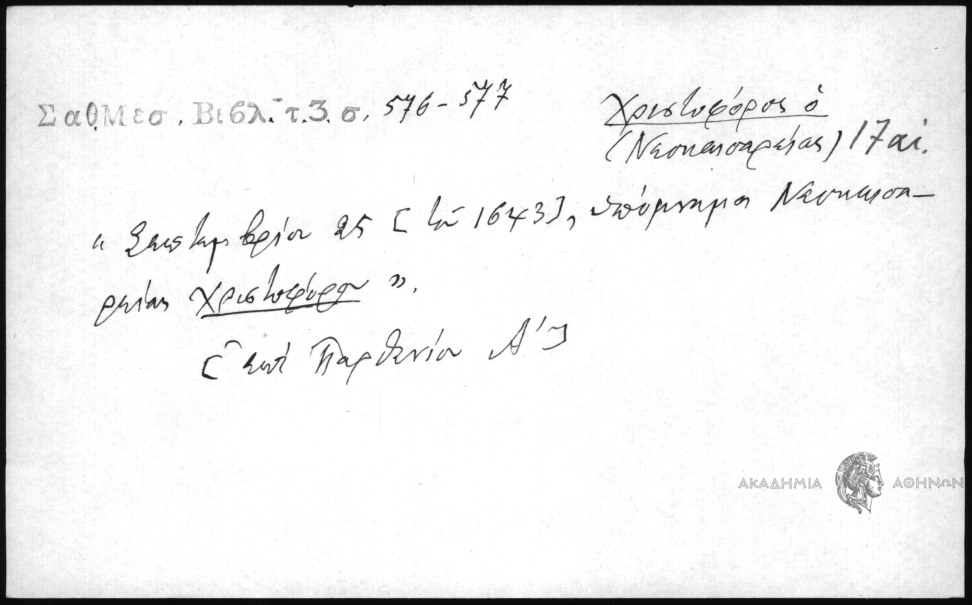 Σαθ. Μεσ. Βιβλ. τ. 3. σ. 576-577
Χριστοφόρος ὁ
(Νεοκαισαρείας) 17 αἰ.
« Σεπτεμβρίου 25 [τοῦ 1643], ὑπόμνημα Νεοκαισα-
ρείας Χριστοφόρου ».
[ἐπὶ Παρθενίου Α´]
ΑΚΑΔΗΜΙΑ ΑΘΗΝΩΝ